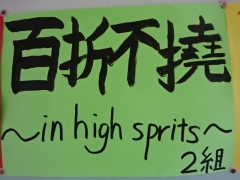 百折不撓
～in high sprits～
2組